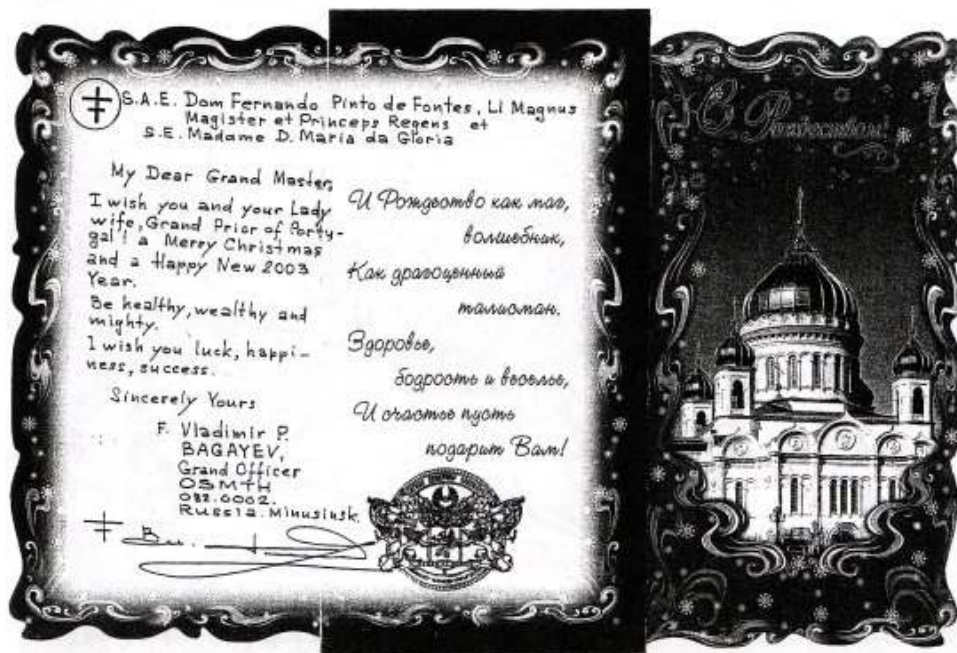 S.A.E. Dom Fernando Pinto de Fontes, Li Magnus
Magister et Princeps Regens et
S.E. Madame D. Maria da Gloria
My Dear Grand Master,
I wish you and your Lady
wife, Grand Prior of Portu-
gal! a Merry Christmas
and a Happy New 2003
Year.
Be healthy, wealthy and
mighty.
I wish you luck, happi-
ness, success.
Sincerely Yours
F. Vladimir P.
BAGAYEV,
Grand Officer
OSMTH
082.0002.
Russia. Minusinsk.
И Рождество как маг,
волшебник,
Как драгоценный
талисман.
Здоровье,
бодрость и веселье,
И счастье пусть
подарит Вам!
С Рождеством!